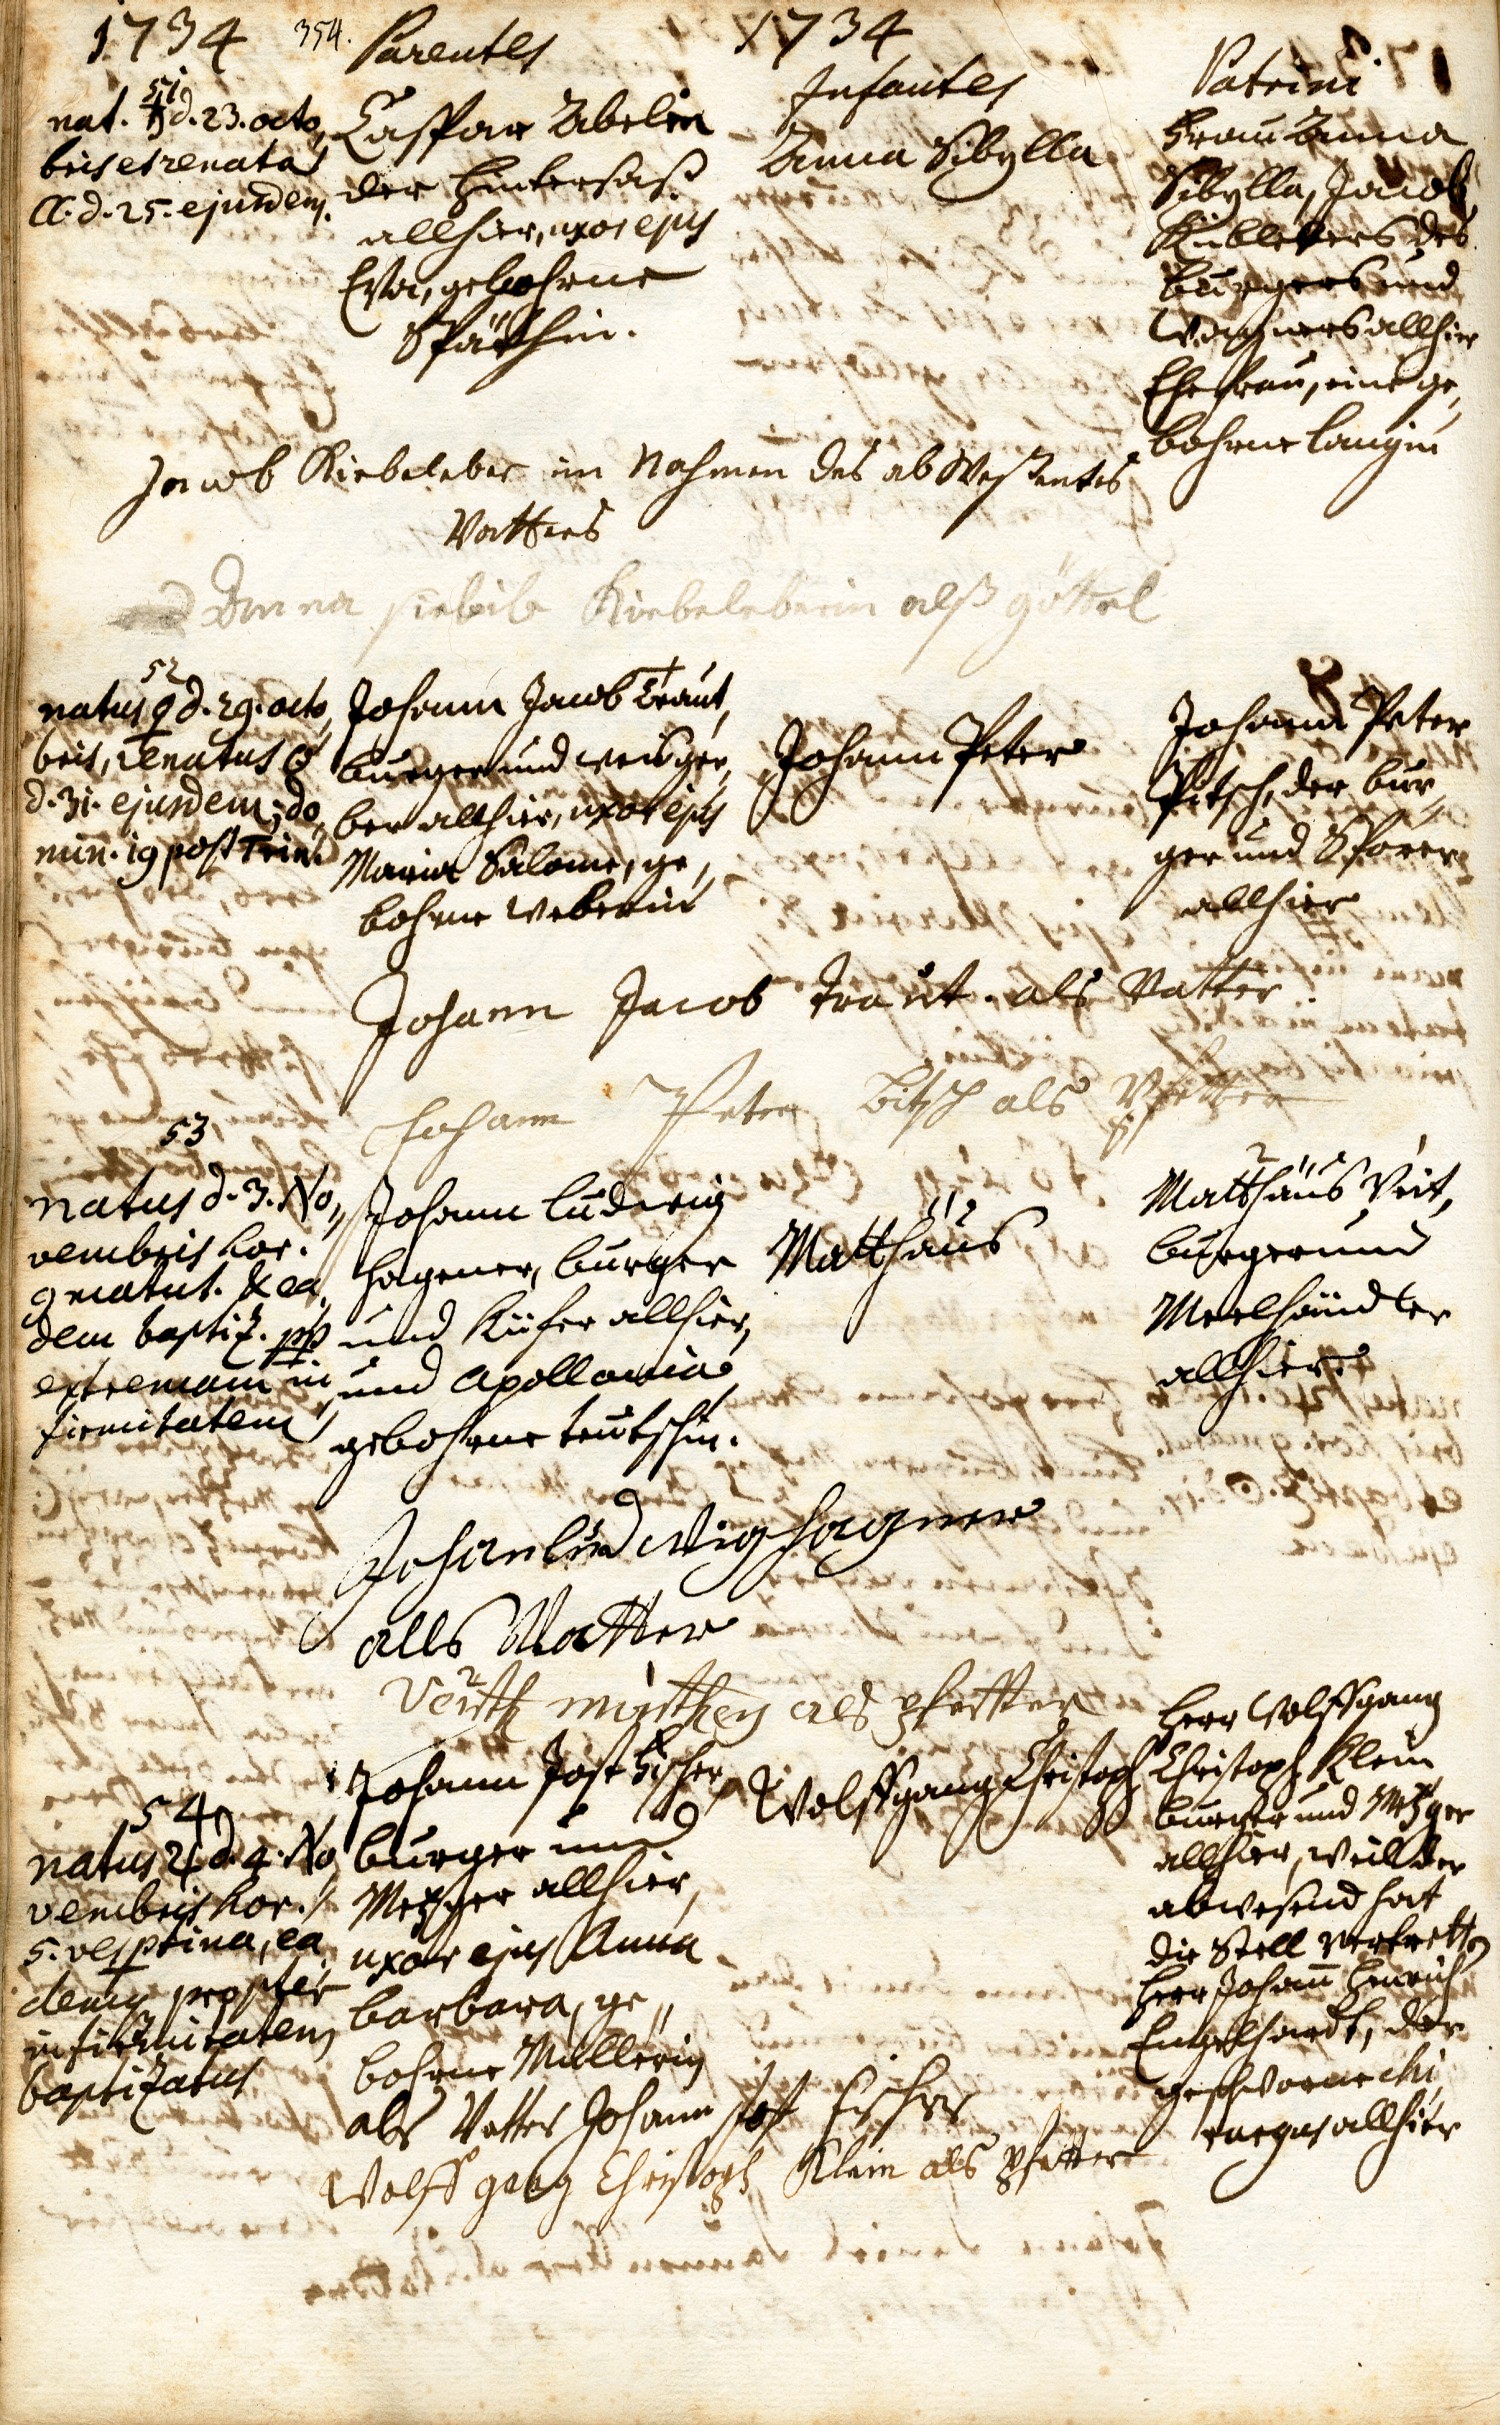 1734 354. Parentes 1734 Infantes Patrini
51
nat. ♄ d. 23. octo,
bris et renata
☾. d. 25. ejusdem.
Caspar Abelin
der Hintersaß
allhier, uxor ejus
Eva, gebohrne
Späthin.
Anna Sibylla
Frau Anna
Sibylla, Jacob
Kieblebers des
burgers und
Wagners allhier
Ehefrau, eine ge,
bohrne Langin
Jacob Kiebeleber im Nahmen des abweßentes
Vatters
Anna siebila Kiebeleberin alß göttel
52
natus ♀ d. 29. octo,
bris, renatus ☉
d. 31. ejusdem, do,
min. 19 post Trin.
Johann Jacob Traut,
burger und weisger,
ber allhier, uxor ejus
Maria Salome, ge,
bohrne Weberin
Johann Peter
Johann Peter
Pitsch, der bur,
ger und Sporer
allhier
Johann Jacob Traut. als Vatter
Johann Peter Bitsch als Pfetter
53
natus d. 3. No,,
vembris hor.
9 matut. & ea,
dem baptiz. pp
extremam in,
firmitatem
Johann Ludwig
Hagener, burger
und Küfer allhier,
und Apollonia
gebohrne Teutschin.
Matthäus
Matthäus Veit,
burger und
Meelhändler
allhier
Johan Ludwig Hagner
alls Vatter
Veitt als pfetter
54
natus ♃ d. 4. No
vembris hor.
5. vesptina, ea
dem propter
infirmitatem
baptizatus
Johann Jost Fischer
burger und
Metzger allhier,
uxor ejus Anna
barbara, ge,,
bohrne Müllerin
Wolffgang Christoph
Herr Wolffgang
Christoph Klein
burger und Metzger
allhier, weil der
abwesend hat
die Stell vertretten
Herr Johann Henrich
Engelhardt, der
geschworne chi,
rurgus allhier
als Vatter Johann Jost Fischer
Wolff gang Christoph Klein als pfetter